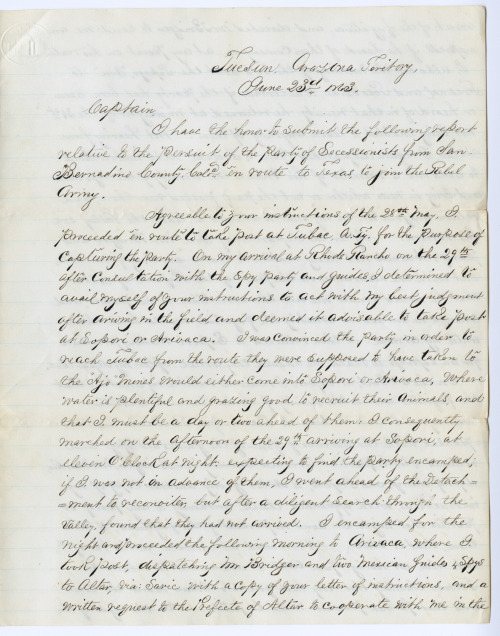 Tucson Arazona Teritory,
June 23rd 1863.
Captain,
I have the honor to submit the following report
relative to the pursuit of the party of Secessionists from San
Bernadino County, Cala en route to Texas to join the Rebel
Army.
Agreeable to your instructions of the 28th May, I
proceeded en route to take post at Tubac A.T. for the purpose of
Capturing the party. On my arrival at Rhods Rancho on the 29th
after Consultation with the Spy party and guides, I determined to
avail myself of your instructions to act with my best judgment
after ariving in the field and deemed it advisable to take post
at Sopori or Arivaca. I was convinced the party in order to
reach Tubac from the route they were supposed to have taken to
the "Ajo" Mines would either come into Sopori or Arivaca, where
water is plentiful and grazing good to recruit their Animals, and
that I must be a day or two ahead of them; I consequently
marched on the afternoon of the 29th arriving at Sopori, at
eleven O'Clock at night. expecting to find the party encamped,
if I was not in advance of them, I went ahead of the Detach=
=ment to reconoiter, but after a diligent search through the
Valley, found that they had not arrived. I encamped for the
night and proceeded the following morning to Arivaca, where I
took post, despatching Mr Bridger and two Mexican Guides & Spys
to Altar, via Saric with a Copy of your letter of instructions, and a
written request to the Prefecto of Altar to cooperate with me in the